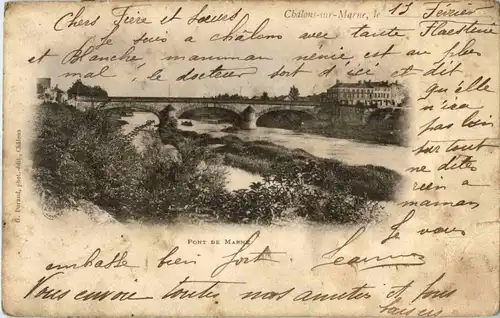 Châlons-sur-Marne, le 15 Fevrier
Chers Frère et Soeurs
Je suis a châlons avec tante
et Blanche, maman est au plus
mal, le docteur sort d'ici et dit
qu'elle
n'ira
pas loin.
surtout
ne dites
rien a
maman
je vous
embrasse bien fort. Jeanne
Vous envoie toutes nos amitiés et pour
baisers
PONT DE MARNE
G. Durand, phot.-édit., Châlons